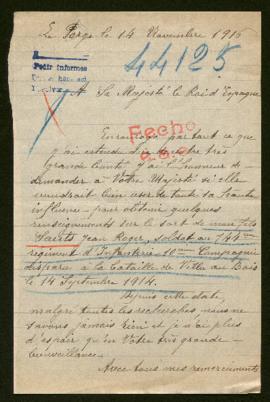 Le Perge le 14 Novembre 1915
44125
Pedir informes
A Sa Majesté le Roi d'Espagne
Fecho
Encouragé par tout ce que
j'ai entendu dire de votre très
grande bonté j'ai l'honneur de
demander à Votre Majesté si elle
voudrait bien user de toute sa haute
influence pour obtenir quelques
renseignements sur le sort de mon fils
Jean Roger, soldat au 144me
régiment d'Infanterie 10me Compagnie
disparu à la bataille de Ville au Bois
le 14 Septembre 1914.
Depuis cette date,
malgré toutes les recherches nous ne
savons jamais rien et je n'ai plus
d'espoir qu'en Votre très grande
bienveillance.
Avec tous mes remerciements